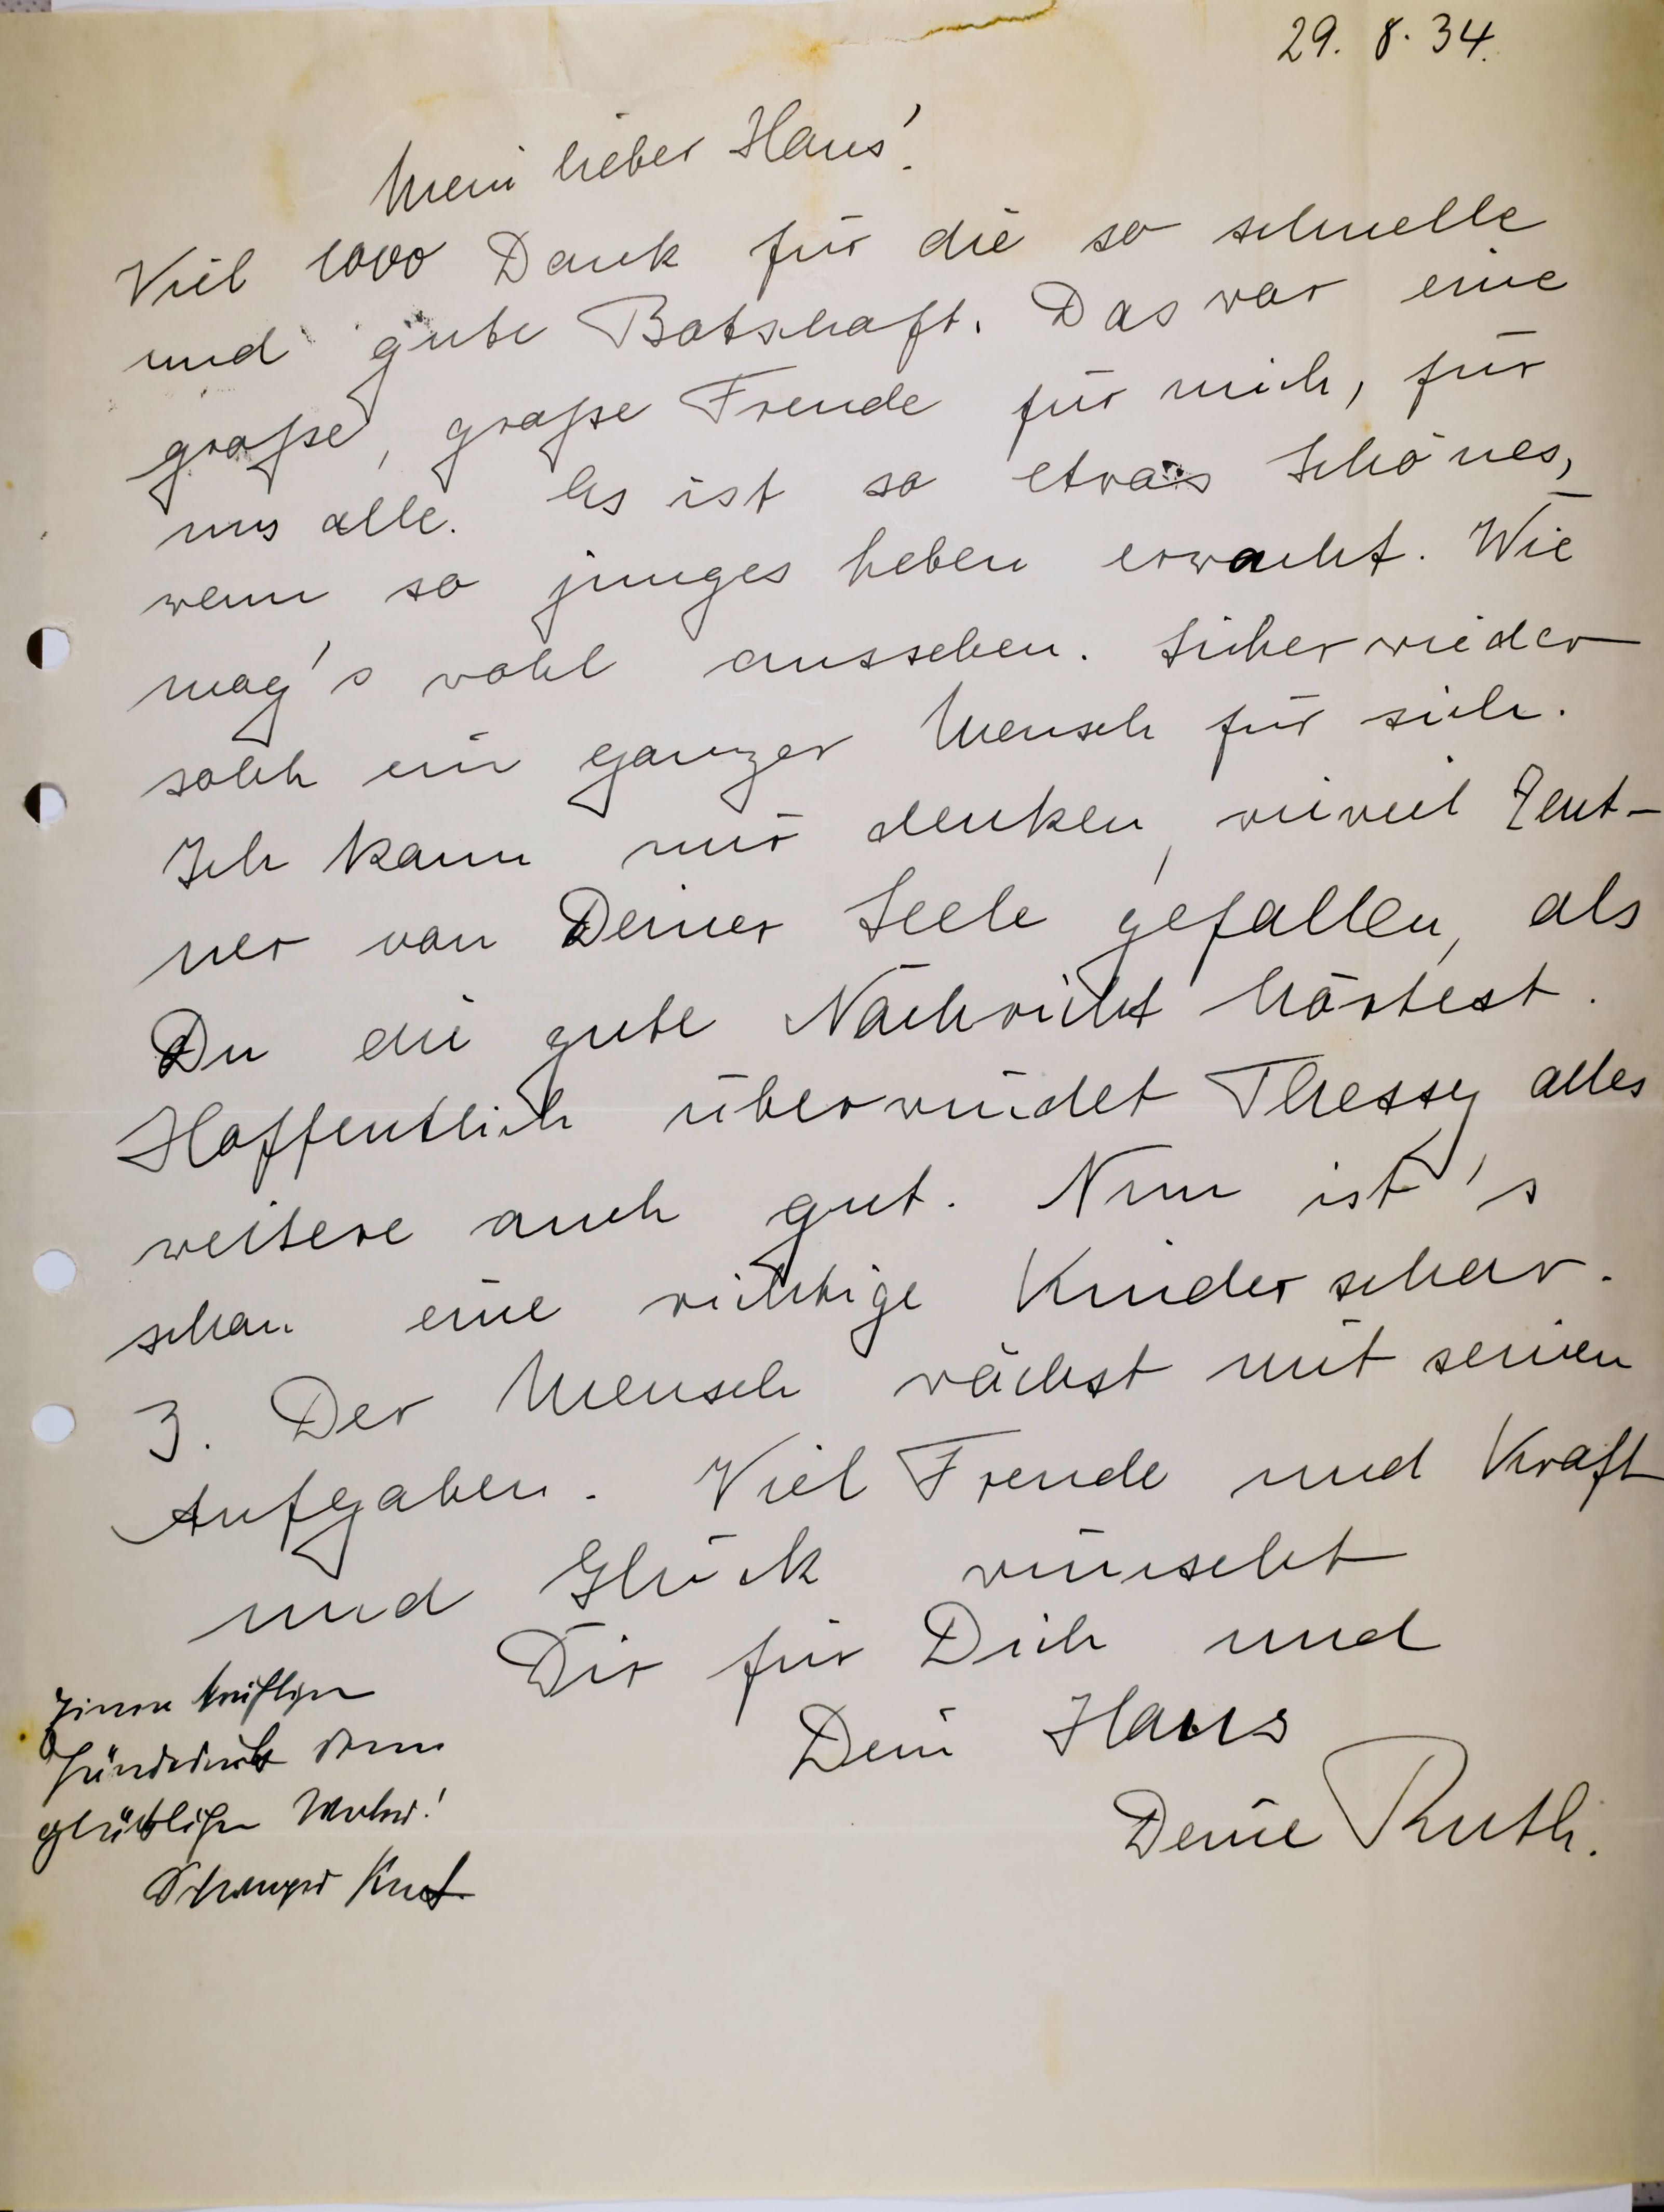 29. 8. 34.
Mein lieber Hans!
Viel 1000 Dank für die so schnelle
und gute Botschaft. Das war eine
große, große Freude für mich, für
uns alle. Es ist so etwas Schönes,
wenn so junges Leben erwacht. Wie
mag's wohl aussehen. Sicher wieder
solch ein ganzer Mensch für sich.
Ich kann mir denken, wieviel Zent-
ner von Deiner Seele gefallen, als
Du die gute Nachricht hörtest.
Hoffentlich überwindet Thessy alles
weitere auch gut. Nun ist's
schon eine richtige Kinderschar.
3. Der Mensch wächst mit seinen
Aufgaben. Viel Freude und Kraft
und Glück wünscht
Dir für Dich und
Dein Haus
Deine Ruth.
Einen kräftigen
Händedruck dem
glücklichen Vater!
Schwager Knut